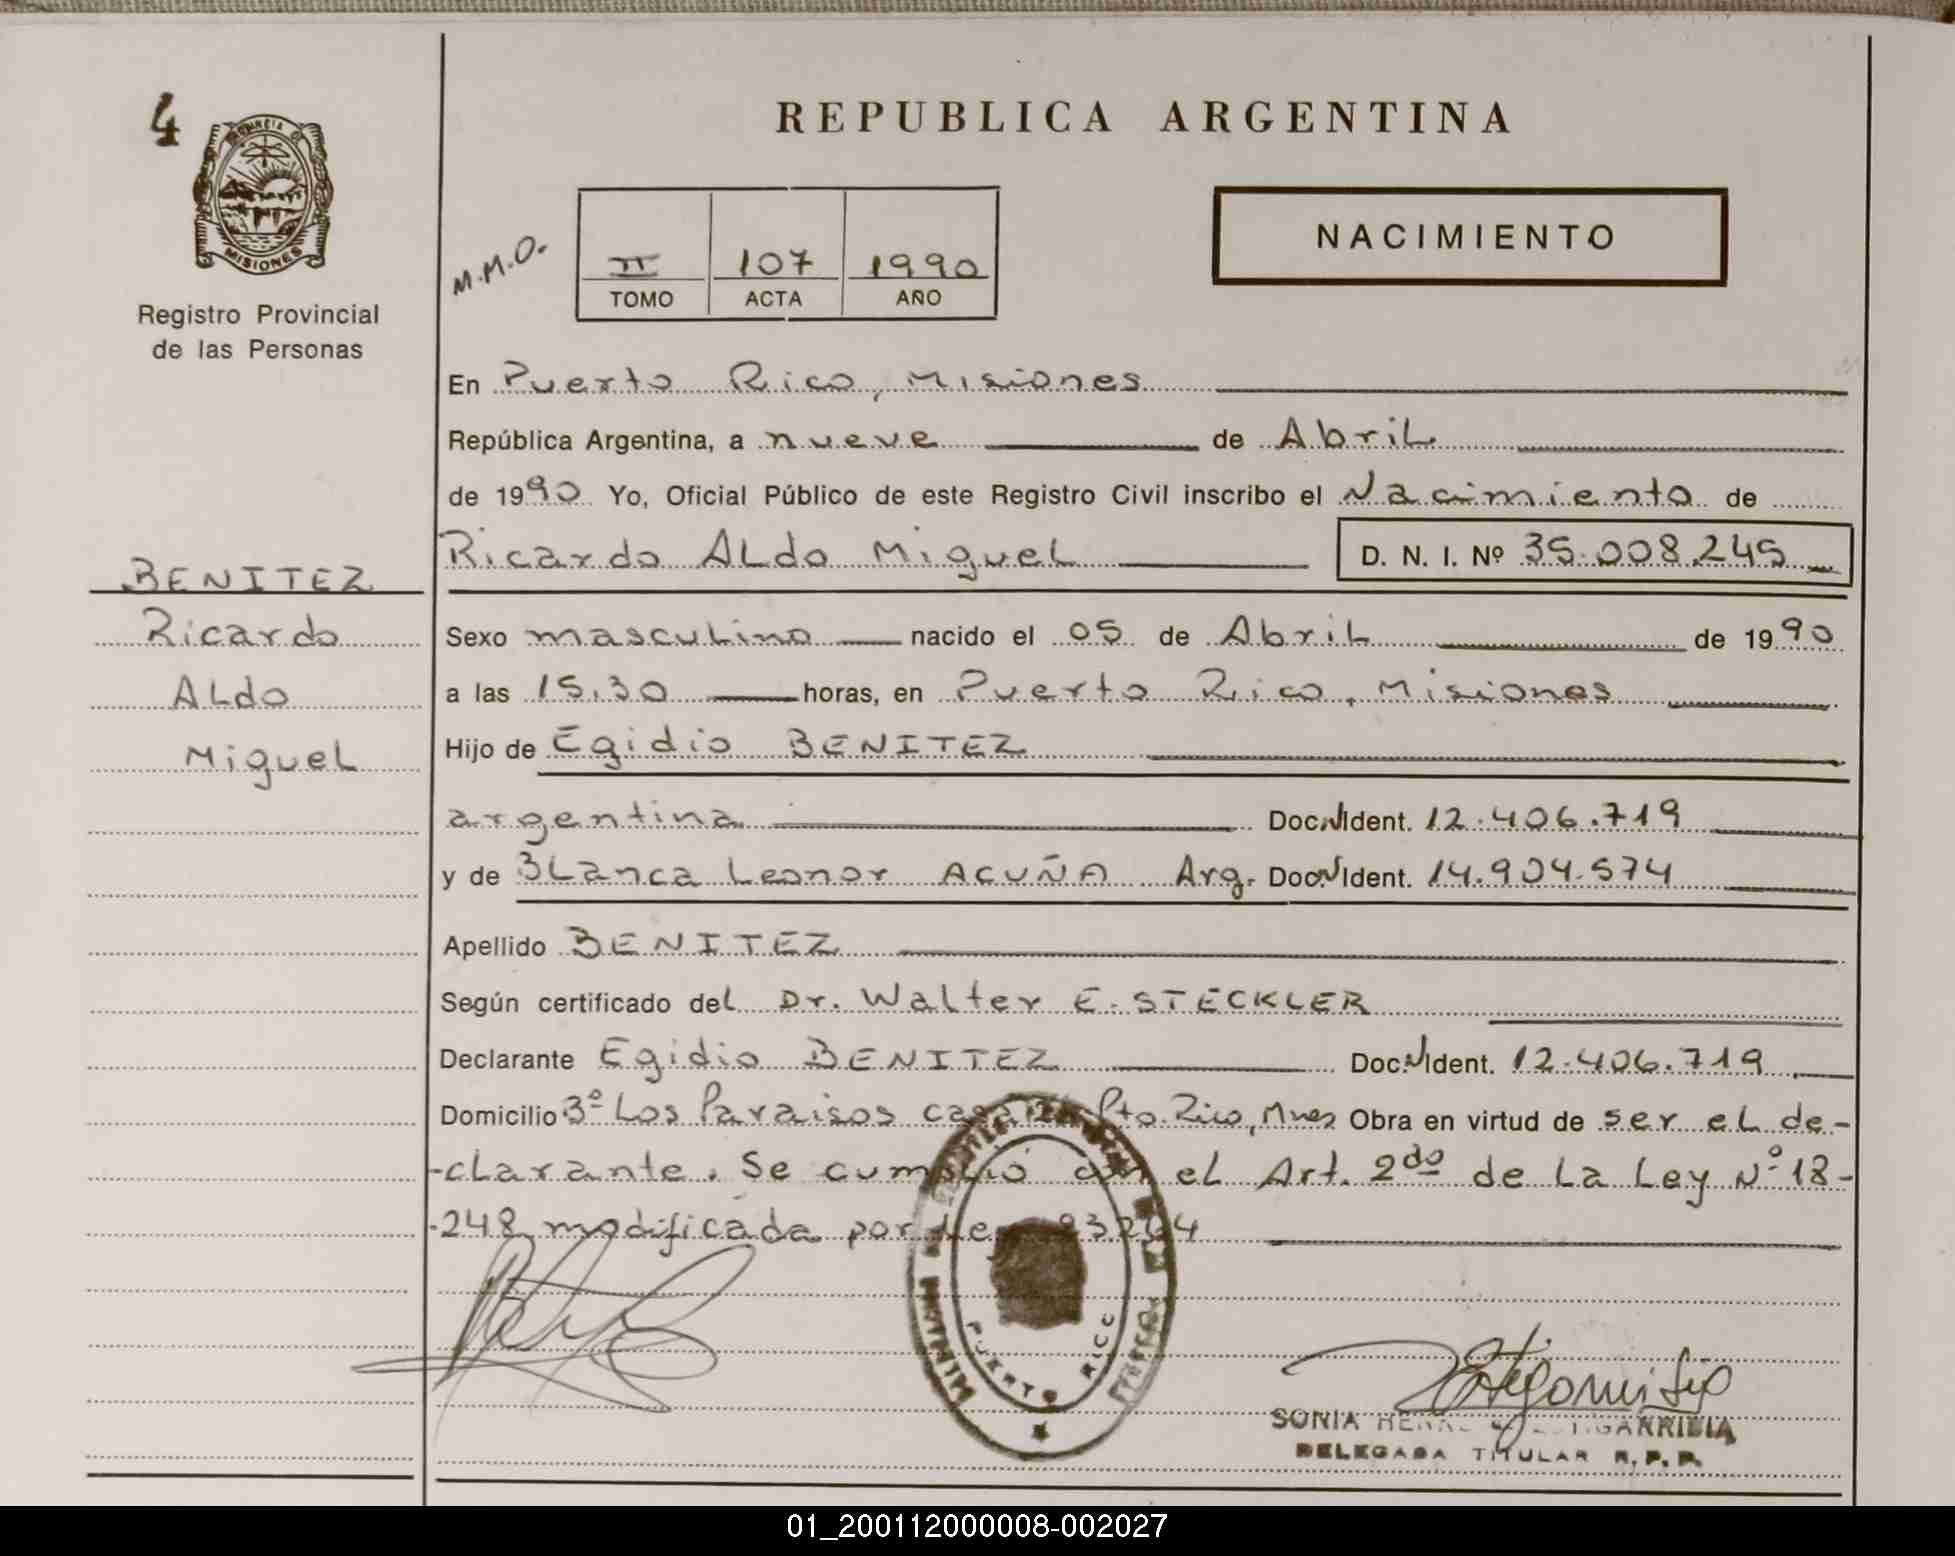 4
PROVINCIA D
MISIONES
Registro Provincial
de las Personas
BENITEZ
Ricardo
Aldo
Miguel
REPUBLICA ARGENTINA
M.M.O.
II 107 1990
TOMO ACTA AÑO
NACIMIENTO
En Puerto Rico, Misiones
República Argentina, a nueve de Abril
de 1990 Yo, Oficial Público de este Registro Civil inscribo el Nacimiento de
Ricardo Aldo Miguel D. N. I. Nº 35.008.245
Sexo masculino nacido el 05 de Abril de 1990
a las 15.30 horas, en Puerto Rico, Misiones
Hijo de Egidio BENITEZ
argentina Doc. N Ident. 12.406.719
y de Blanca Leonor ACUÑA Arg. Doc. N Ident. 14.904.574
Apellido BENITEZ
Según certificado del Dr. Walter E. STECKLER
Declarante Egidio BENITEZ Doc. N Ident. 12.406.719
Domicilio 3º Los Paraisos casa Pto. Rico, Mnes Obra en virtud de ser el de-
-clarante. Se cumplió con el Art. 2do de la Ley Nº 18-
-248 modificada por Ley 23264
PUERTO RICO
SONIA
DELEGADA TITULAR R.P.P.
01_200112000008-002027